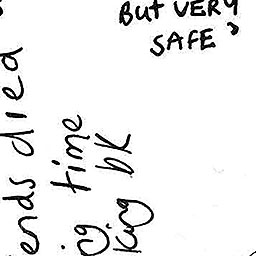 BUT VERY
SAFE
ends died
time
king DK